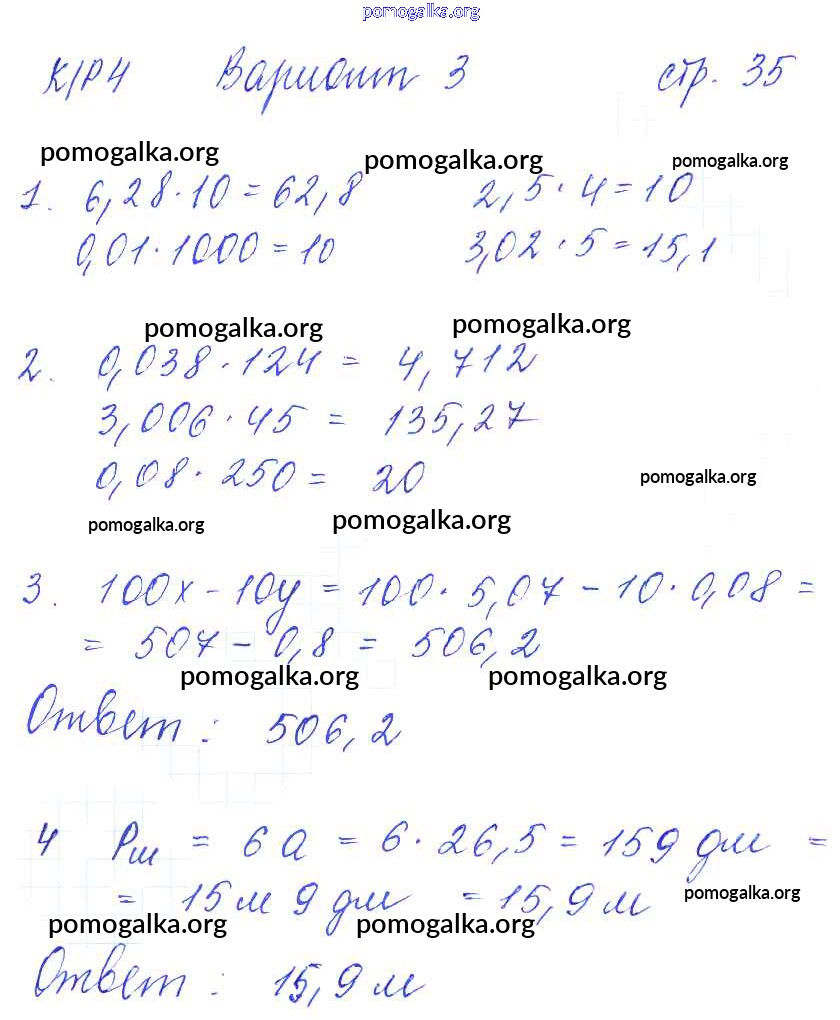 pomogalka.org
К/Р4 Вариант 3 стр. 35
pomogalka.org pomogalka.org pomogalka.org
1. 6,28·10=62,8 2,5·4=10
0,01·1000=10 3,02·5=15,1
pomogalka.org pomogalka.org
2. 0,038·124 = 4,712
3,006·45 = 135,27
0,08·250= 20
pomogalka.org
pomogalka.org pomogalka.org
3. 100x-10y=100·5,07-10·0,08=
= 507-0,8 = 506,2
pomogalka.org pomogalka.org
Ответ: 506,2
4 Pш = 6a = 6·26,5=159 дм =
= 15м 9 дм =15,9м
pomogalka.org
pomogalka.org pomogalka.org
Ответ: 15,9м